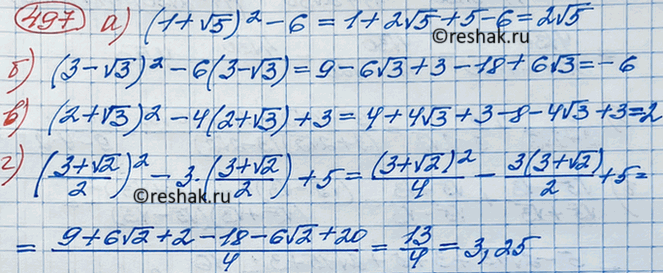 497 а) (1+√5)² − 6 = 1 + 2√5 + 5 − 6 = 2√5
б) (3−√3)² − 6(3−√3) = 9 − 6√3 + 3 − 18 + 6√3 = −6
в) (2+√3)² − 4(2+√3) + 3 = 4 + 4√3 + 3 − 8 − 4√3 + 3 = 2
г) ((3+√2)/2)² − 3·((3+√2)/2) + 5 = (3+√2)²/4 − 3(3+√2)/2 + 5 =
©reshak.ru
= (9 + 6√2 + 2 − 18 − 6√2 + 20)/4 = 13/4 = 3,25
©reshak.ru